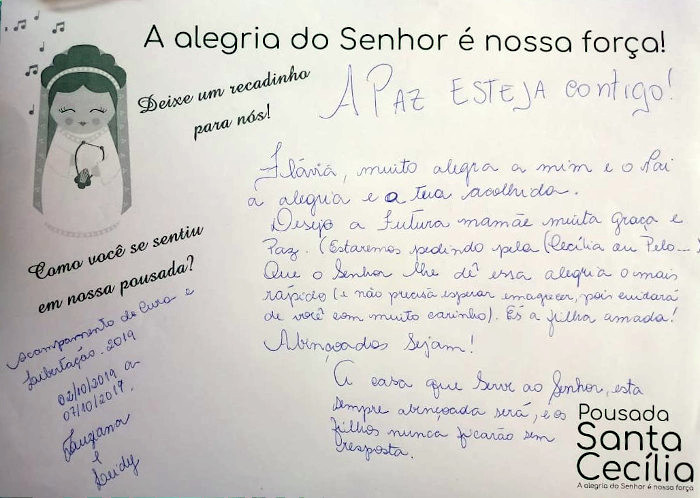 A alegria do Senhor é nossa força!
Deixe um recadinho
para nós!
A PAZ ESTEJA contigo!
Flávia, muito alegra a mim e o Pai
a alegria e a tua acolhida.
Desejo a Futura mamãe muita graça e
Paz. (Estaremos pedindo pela (Cecília ou Pelo...)
Que o Senhor lhe dê essa alegria o mais
rápido (e não precisa esperar emagrecer, pois cuidará
de você com muito carinho). És a filha amada!
Abençoados Sejam!
A casa que serve ao Senhor, esta
sempre abençoada será, e os
filhos nunca ficarão sem
resposta.
Como você se sentiu
em nossa pousada?
Acampamento de Cura e
Libertação. 2019
02/10/2019 a
07/10/2019.
e
Pousada
Santa
Cecília
A alegria do Senhor é nossa força